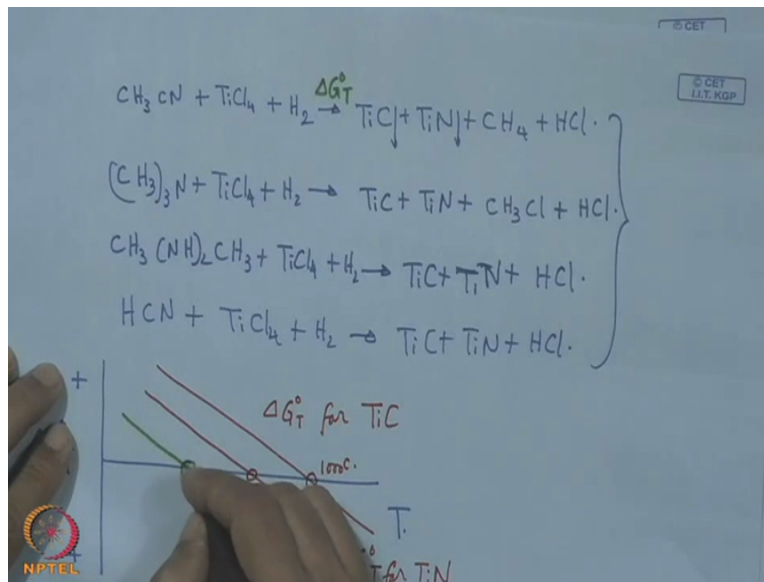 © CET
© CET
I.I.T. KGP
CH₃CN + TiCl₄ + H₂ → TiC↓ + TiN↓ + CH₄ + HCl.
ΔG°T
(CH₃)₃N + TiCl₄ + H₂ → TiC + TiN + CH₃Cl + HCl.
CH₃(NH)₂CH₃ + TiCl₄ + H₂ → TiC + TiN + HCl.
HCN + TiCl₄ + H₂ → TiC + TiN + HCl.
+
ΔG°T for TiC
1000C.
T.
for TiN
NPTEL